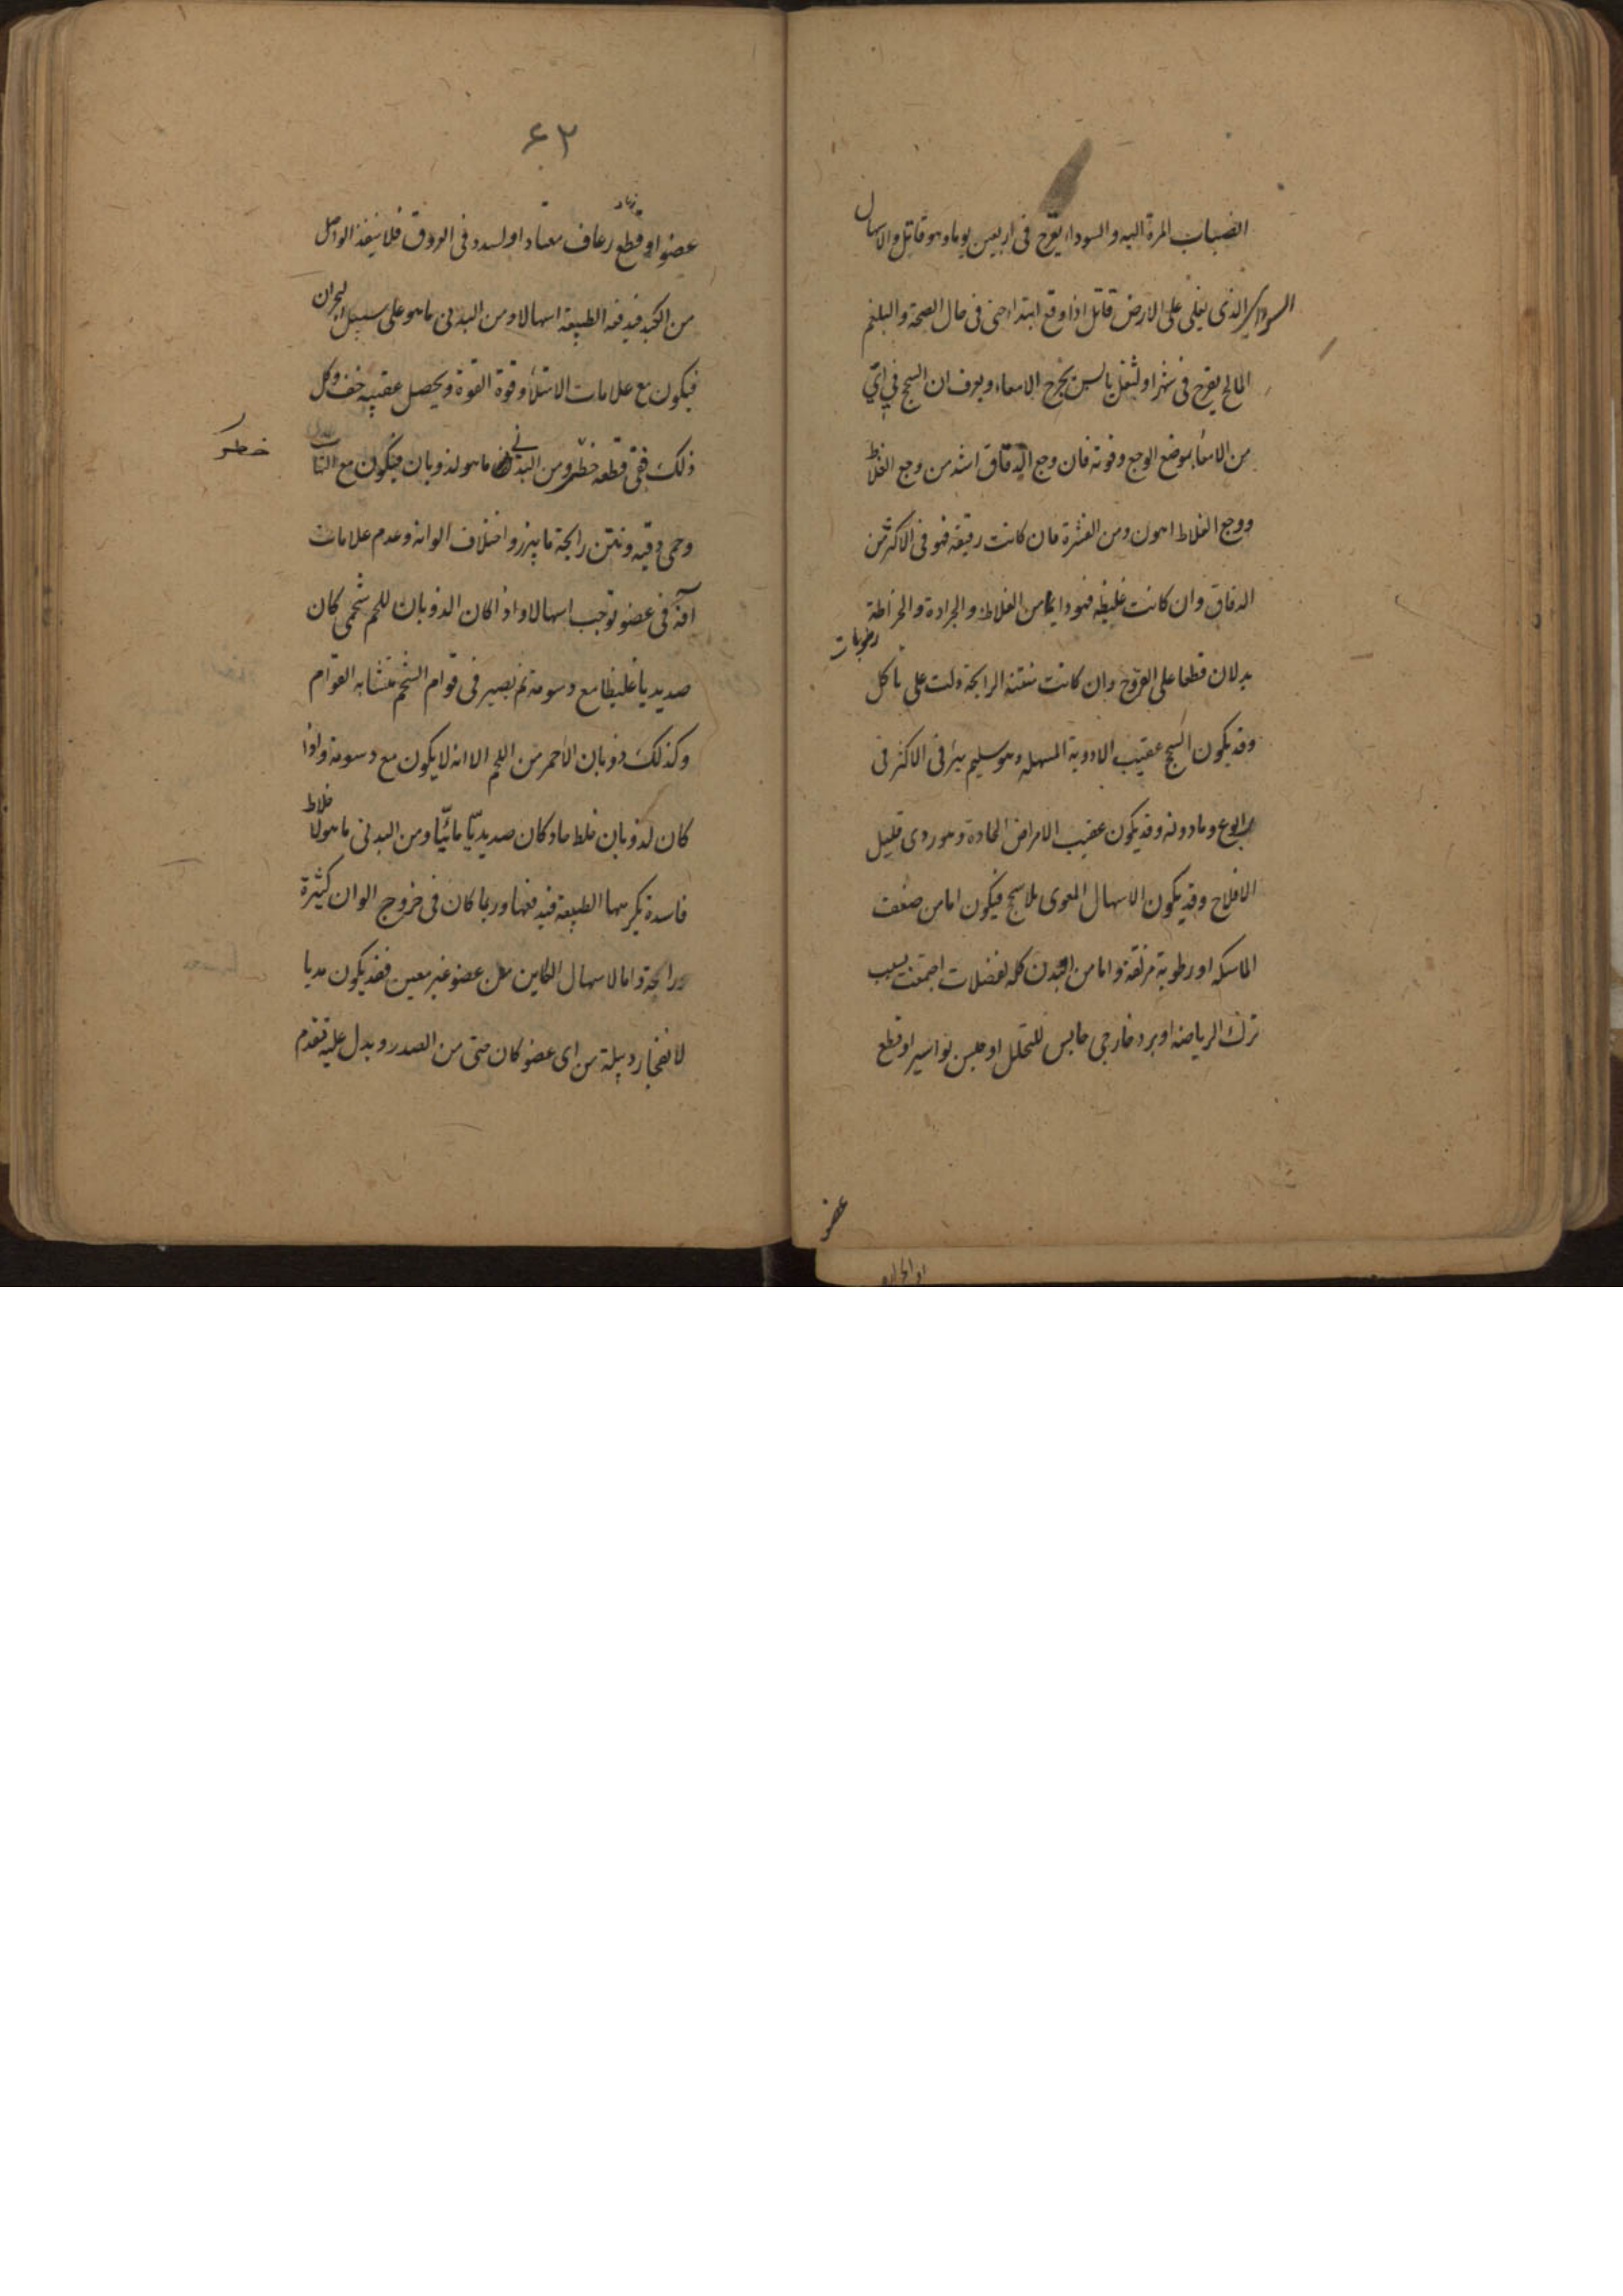 انصباب المرة اليه والسوداء يقرح فى اربعين يوما وهو قاتل والاسهال
السوداوى الذى يغلى على الارض قاتل اذا وقع ابتداء حتى فى حال الصحة والبلغم
المالح يقرح فى شهر او لثفل يابس يجرح الامعاء ويعرف ان السحج فى اى
من الامعاء بموضع الوجع وقوته فان وجع الدقاق اشد من وجع الغلاظ
ووجع الغلاظ اهون ومن القشرة فان كانت رقيقة فهو فى الاكثر من
الدقاق وان كانت غليظه فهو دايما من الغلاظ والجرادة والخراطة
رطوبات
يدلان قطعا على القروح وان كانت منتنة الرايحة دلت على تاكل
وقد يكون السحج عقيب الادوية المسهله وهو سليم يبرأ فى الاكثر فى
اسبوع وما دونه وقد يكون عقيب الامراض الحادة وهو ردى قليل
الافلاح وقد يكون الاسهال المعوى بلا سحج فيكون اما من ضعف
الماسكه او رطوبة مزلقة واما من البدن كله لفضلات اجتمعت بسبب
ترك الرياضه او برد خارجى حابس للتحلل او حبس بواسير او قطع
عضو
۶۲
عضو او قطع رعاف معتاد او لسدد فى العروق فلا ينفذ الواصل
من الكبد فيدفعه الطبيعة اسهالا ومن البدنى ما هو على سبيل البحران
فيكون مع علامات الامتلاء وقوة القوة ويحصل عقيبه خف وكل
ذلك ففى قطعه خطر ومن البدنى ما هو لذوبان فيكون مع التهاب
خطر
وحمى دقيه ونتن رايحة ما يبرز واختلاف الوانه وعدم علامات
آفة فى عضو توجب اسهالا واذا كان الذوبان للحم شحمى كان
صديديا غليظا مع دسومة ثم يصير فى قوام الشحم متشابه القوام
وكذلك ذوبان الاحمر من اللحم الا انه لا يكون مع دسومة واذا
كان لذوبان خلط حاد كان صديديّا مائيّا ومن البدنى ما هو لاخلاط
فاسدة تكرهها الطبيعة فيدفعها وربما كان فى خروج الوان كثيرة
ورايحة واما الاسهال الكاين من عضو غير معين فقد يكون مديا
لانفجار دبيلة من اى عضو كان حتى من الصدر ويدل عليه تقدم